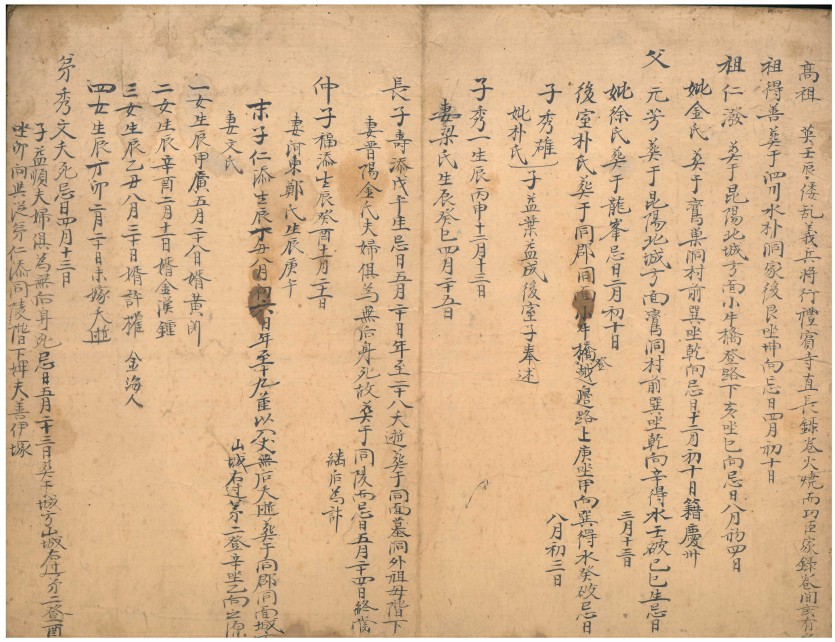 高祖 英壬辰倭乱義兵将行禮賓寺直長錄巻火燒而功臣家錄巻間亥有
祖得善葬于泗川水朴洞家後艮坐坤向忌日四月初十日
祖仁潑 葬于昆陽北城方面小牛橋登路下亥坐巳向忌日八月初四日
妣金氏 葬于鷰巢洞村前巽坐乾向忌日十二月初十日籍慶州
父 元芳 葬于昆陽北城方面鷰洞村前巽坐乾向辛得水壬破己巳生忌日
三月十三日
妣徐氏 葬于龍峯忌日二月初十日
後室朴氏葬于同郡同面小牛橋越邊路上庚坐甲向巽得水癸破忌日
登
八月初三日
子秀雄
妣朴氏 子益葉益成後室子奉述
子秀一生辰丙申十二月十三日
妻梁氏生辰癸巳四月二十五日
長子壽添戊午生忌日五月二十日年至二十八夭逝葬于同面墓洞外祖母階下
妻晋陽金氏夫婦俱為無后身死故葬于同陵而忌日五月二十四日終
繼后為計
仲子福添生辰癸酉十月二十二日
妻河東鄭氏生辰庚午
末子仁添生辰丁丑八月初六日年至十九 以 無后夭逝葬于同郡同面城
山城右邊第二登辛坐乙向之原
妻文氏
一女生辰甲 五月二十八日婿黃
二女生辰辛酉二月十一日婿金漢鍾
三女生辰乙丑八月三十日婿許權 金海人
四女生辰丁卯二月二十日未嫁夭逝
弟秀文夫死忌日四月十三日
子益順夫婦俱為無后身死忌日五月二十三日葬于城方山城右邊第二登酉
坐卯向與從弟仁添同陵階下婢夫善伊塚